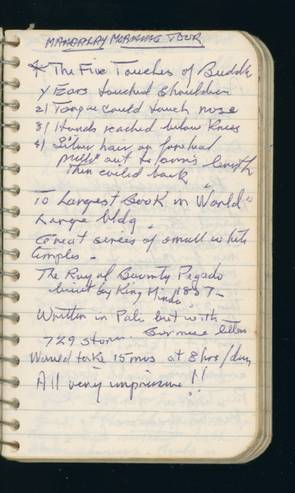 MANDALAY MORNING TOUR
The Five Touches of Buddh
1/ Ears touched shoulders
2/ Tongue could touch nose
3/ Hands reached below knees
4/ Silver hair on forehead
pulled out to arms length
then coiled back
To Largest Book in World"
Large bldg.
Great series of small white
temples.
The Royal Bounty Pagoda
built by King Mindo 1857-
Written in Pali but with
Burmese letters
729 stones.
Would take 15 mos at 8 hrs/day
All very impressive!!